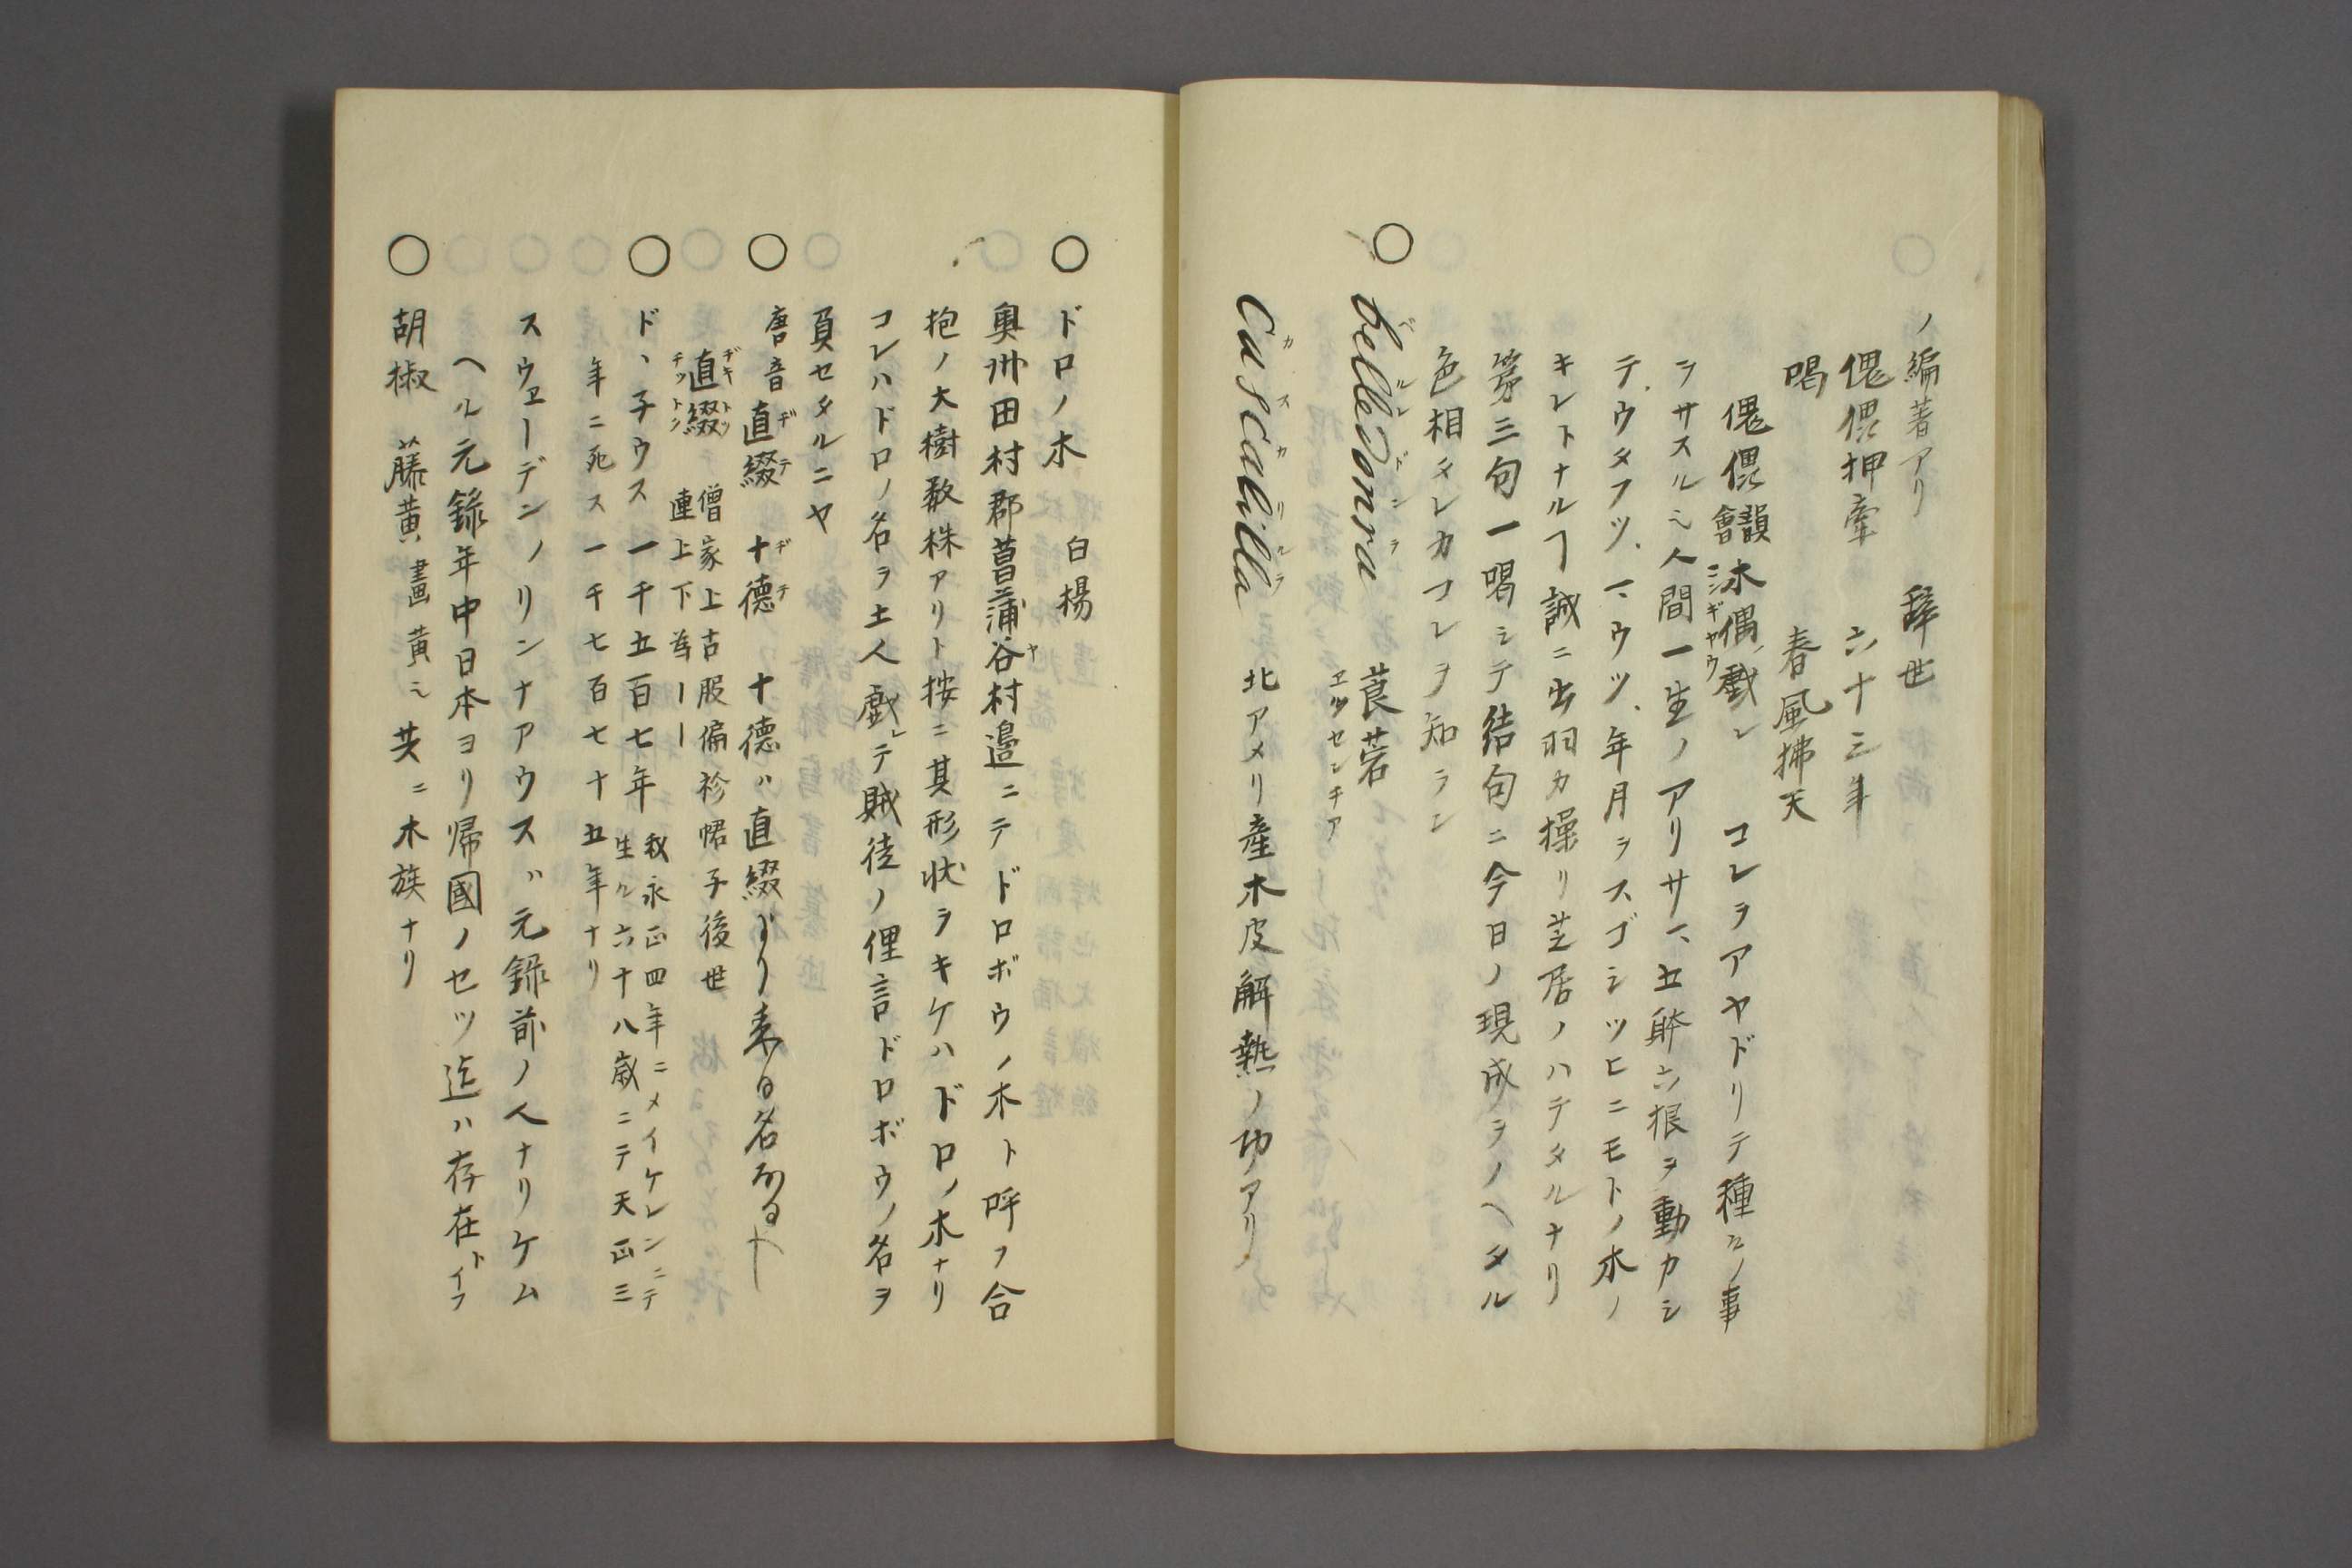 ノ編著アリ 辞世
傀儡押牽 六十三年
喝 春風拂天
傀儡會韻木偶戯シ ニンギヤウ コレヲアヤドリテ種々ノ事
ヲサスル也人間一生ノアリサマ五躰六根ヲ動カシ
テウタフツマウツ年月ヲスゴシツヒニモトノ木ノ
キレトナルヿ誠ニ出羽カ操リ芝居ノハテタルナリ
第三句一喝シテ結句ニ今日ノ現成ヲノヘタル
色相タレカコレヲ知ラン
○ belledonra ベルレドンラ 莨菪 エツセンチア
Cascalilla カスカリルラ 北アメリ産木皮解熱ノ功アリ
○ ドロノ木 白楊
奥州田村郡菖蒲谷村邉ニテドロボウノ木ト呼フ合
抱ノ大樹数株アリト按ニ其形状ヲキケハドロノ木ナリ
コレハドロノ名ヲ土人戯レテ賊徒ノ俚言ドロボウノ名ヲ
負セタルニヤ
○ 唐音直綴 ヂテ 十德 ヂテ 十德ハ直綴より来る名なるへし
直綴 ヂキトツ チツトン 僧家上古服偏衫帬子後世
連上下為一一
○ ドヽ子ウス 一千五百七年 我永正四年ニメイケレンニテ
生ル六十八歳ニテ天正三
年ニ死ス 一千七百七十五年ナリ
スウエーデンノリンナアウスハ元録前ノ人ナリケム
ヘル元録年中日本ヨリ帰國ノセツ迄ハ存在トイフ
○ 胡椒 藤黄 畫黄也 共ニ木族ナリ